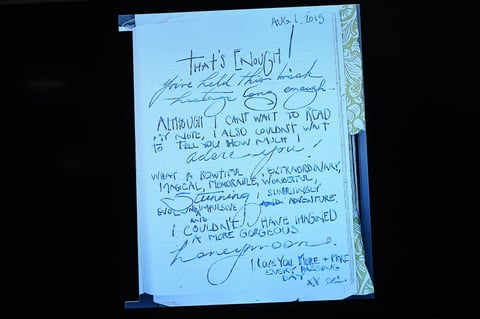 AUG. 1, 2015
THAT'S ENOUGH!
You've held this
hostage long enough.
ALTHOUGH I CANT WAIT TO READ
MY NOTE, I ALSO COULDN'T WAIT
TO TELL YOU HOW MUCH I
adore you!
WHAT A BEWTIFUL, EXTRAORDINARY,
MAGICAL, MEMORABLE, WONDERFUL,
Stunning, SURPRISINGLY
IMPULSIVE ADVENTURE.
AND
I COULDN'T HAVE IMAGINED
A MORE GORGEOUS
honeymoon.
I LOVE YOU MORE + MORE
EVERY PASSING
DAY